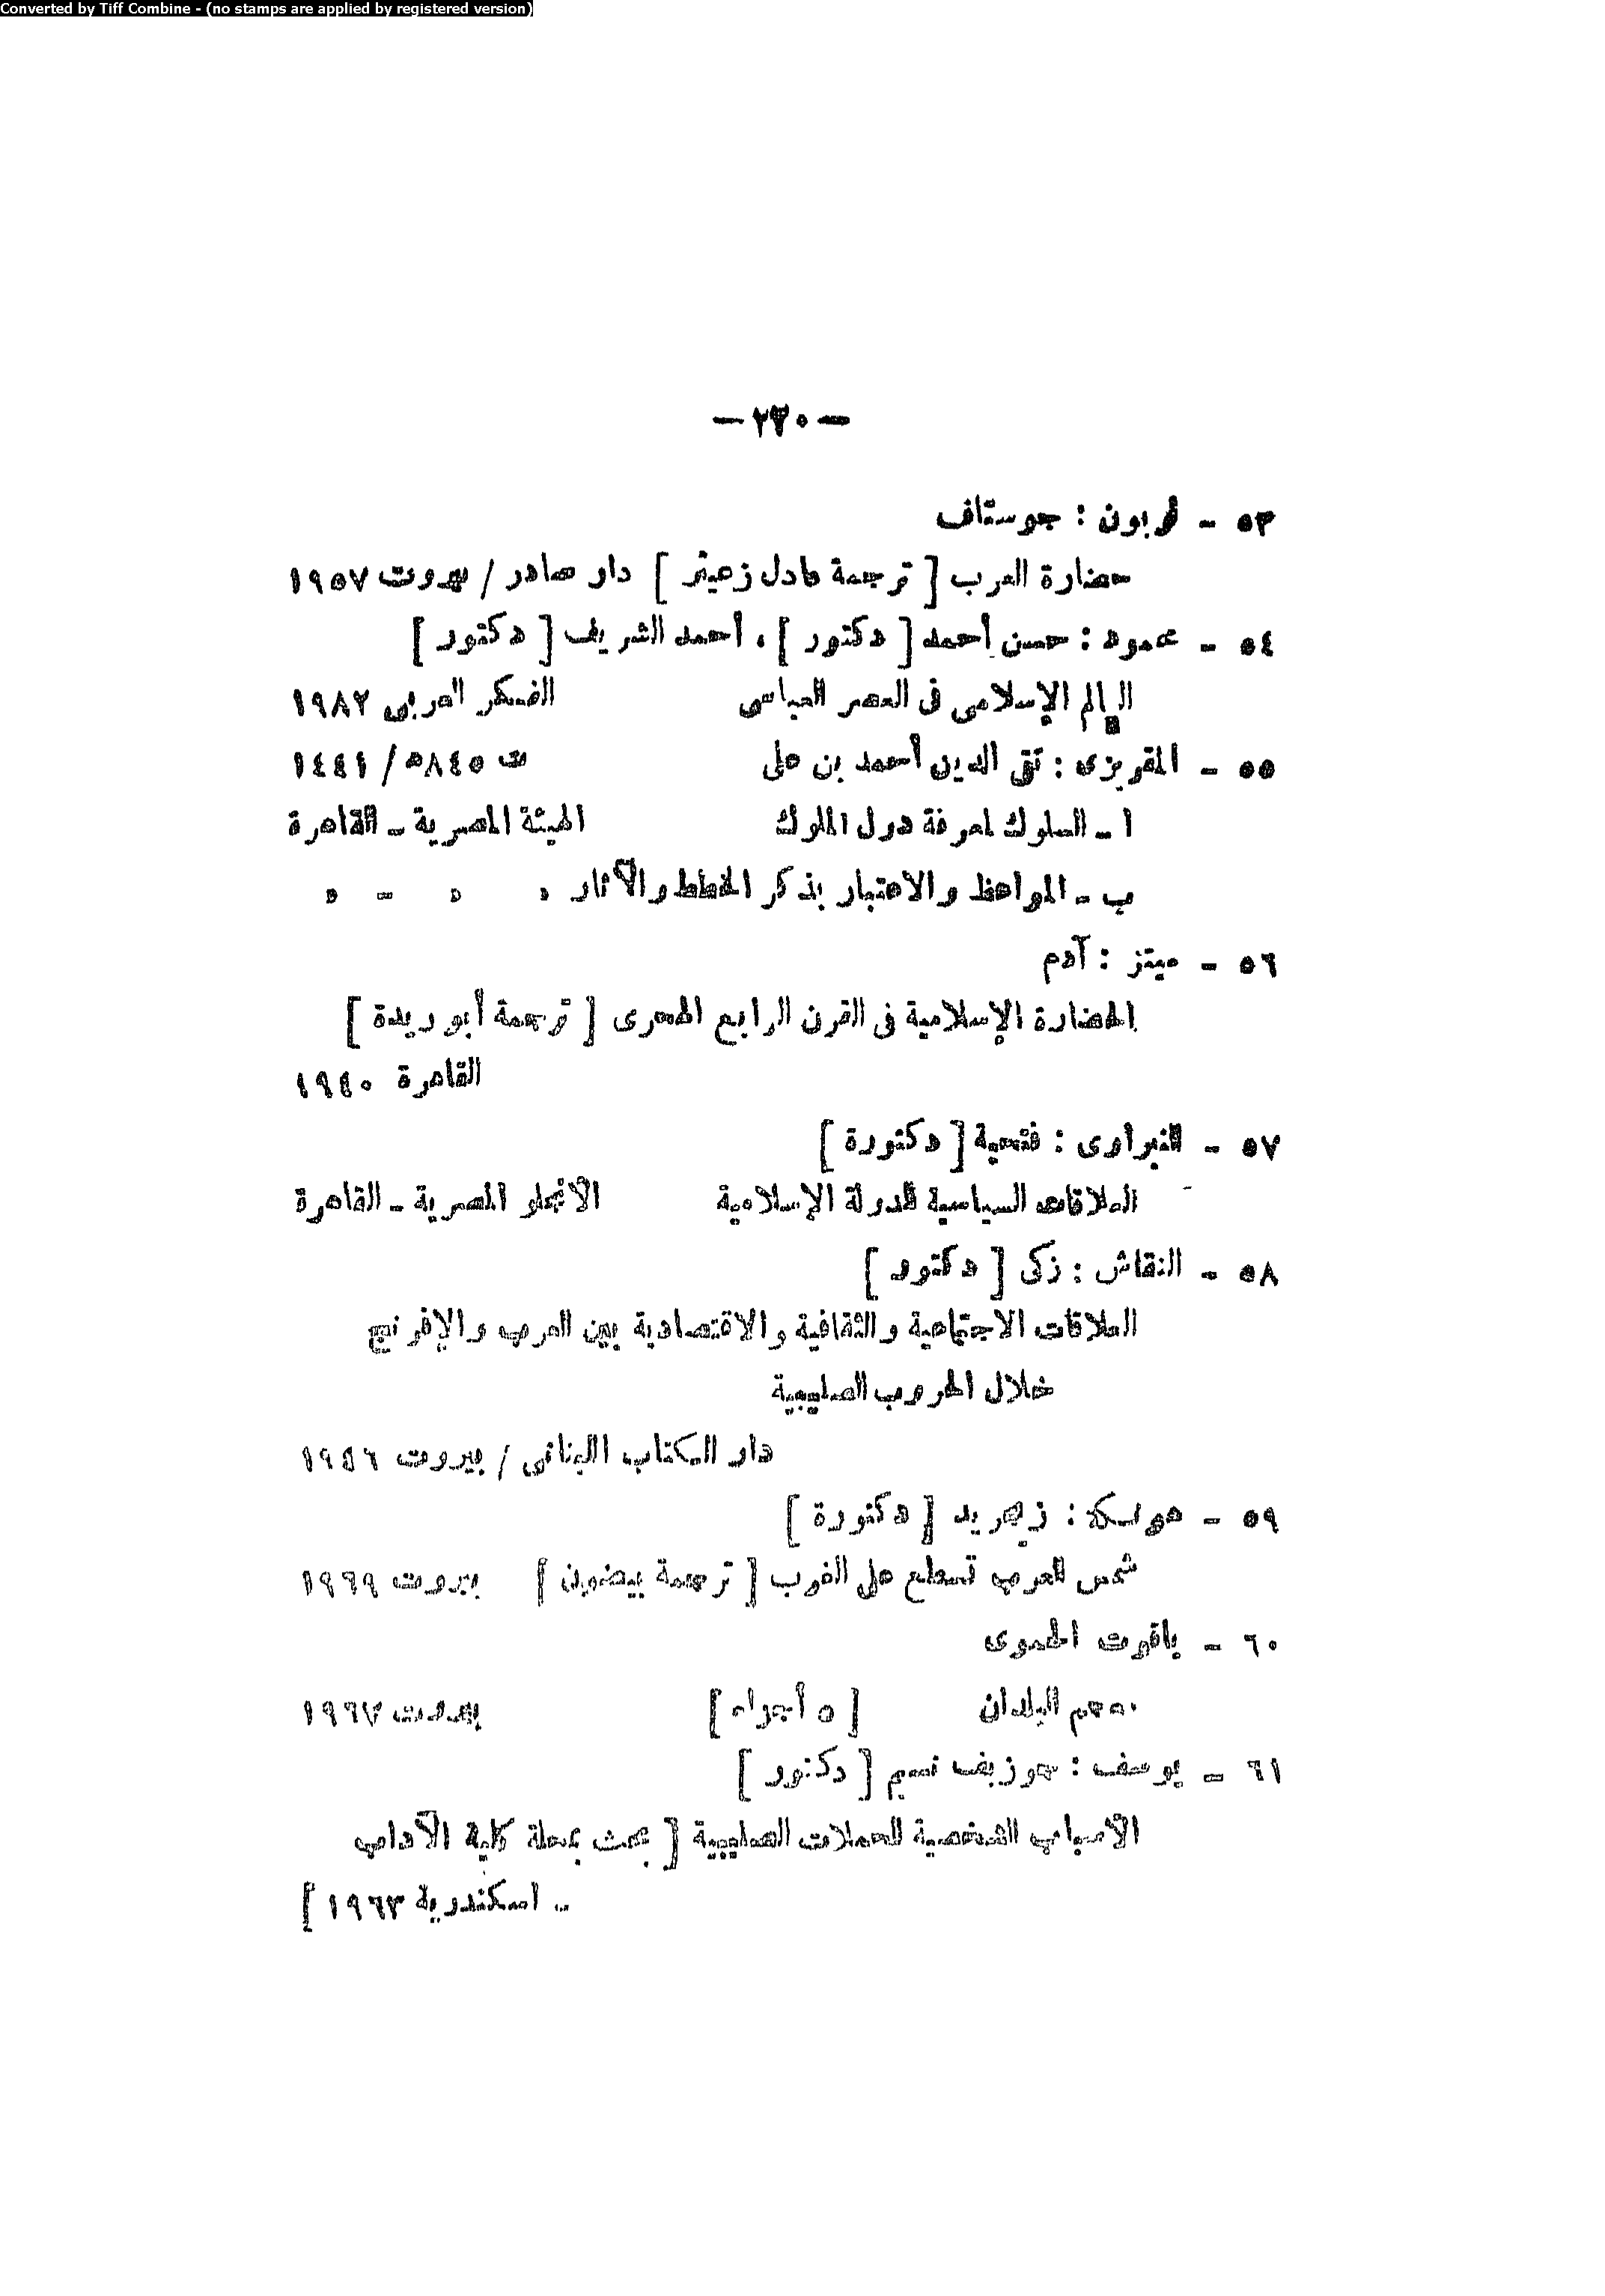 Converted by Tiff Combine - (no stamps are applied by registered version)
— ٢٣٠ —
٥٣ - لوبون : جوستاف
حضارة العرب [ ترجمة عادل زعيتر ] دار صادر / بيروت ١٩٥٧
٥٤ - محمود : حسن أحمد [ دكتور ] ، أحمد الشريف [ دكتور ]
العالم الإسلامى فى العصر العباسى الفكر العربى ١٩٨٢
٥٥ - المقريزى : تقى الدين أحمد بن على ت ٨٤٥هـ / ١٤٤١
ا - السلوك لمعرفة دول الملوك الهيئة المصرية - القاهرة
ب - المواعظ والاعتبار بذكر الخطط والآثار » » - »
٥٦ - ميتز : آدم
الحضارة الإسلامية فى القرن الرابع الهجرى [ ترجمة أبو ريدة ]
القاهرة ١٩٤٠
٥٧ - النبراوى : فتحية [ دكتورة ]
العلاقات السياسية للدولة الإسلامية الأنجلو المصرية - القاهرة
٥٨ - النقاش : زكى [ دكتور ]
العلاقات الاجتماعية والثقافية والاقتصادية بين العرب والإفرنج
خلال الحروب الصليبية
دار الكتاب اللبنانى / بيروت ١٩٤٦
٥٩ - هونكة : زيجريد [ دكتورة ]
شمس العرب تسطع على الغرب [ ترجمة بيضون ] بيروت ١٩٦٩
٦٠ - ياقوت الحموى
معجم البلدان [ ٥ أجزاء ] بيروت ١٩٦٧
٦١ - يوسف : جوزيف نسيم [ دكتور ]
الأسباب الشخصية للحملات الصليبية [ بحث بمجلة كلية الآداب
.. اسكندرية ١٩٦٣ ]